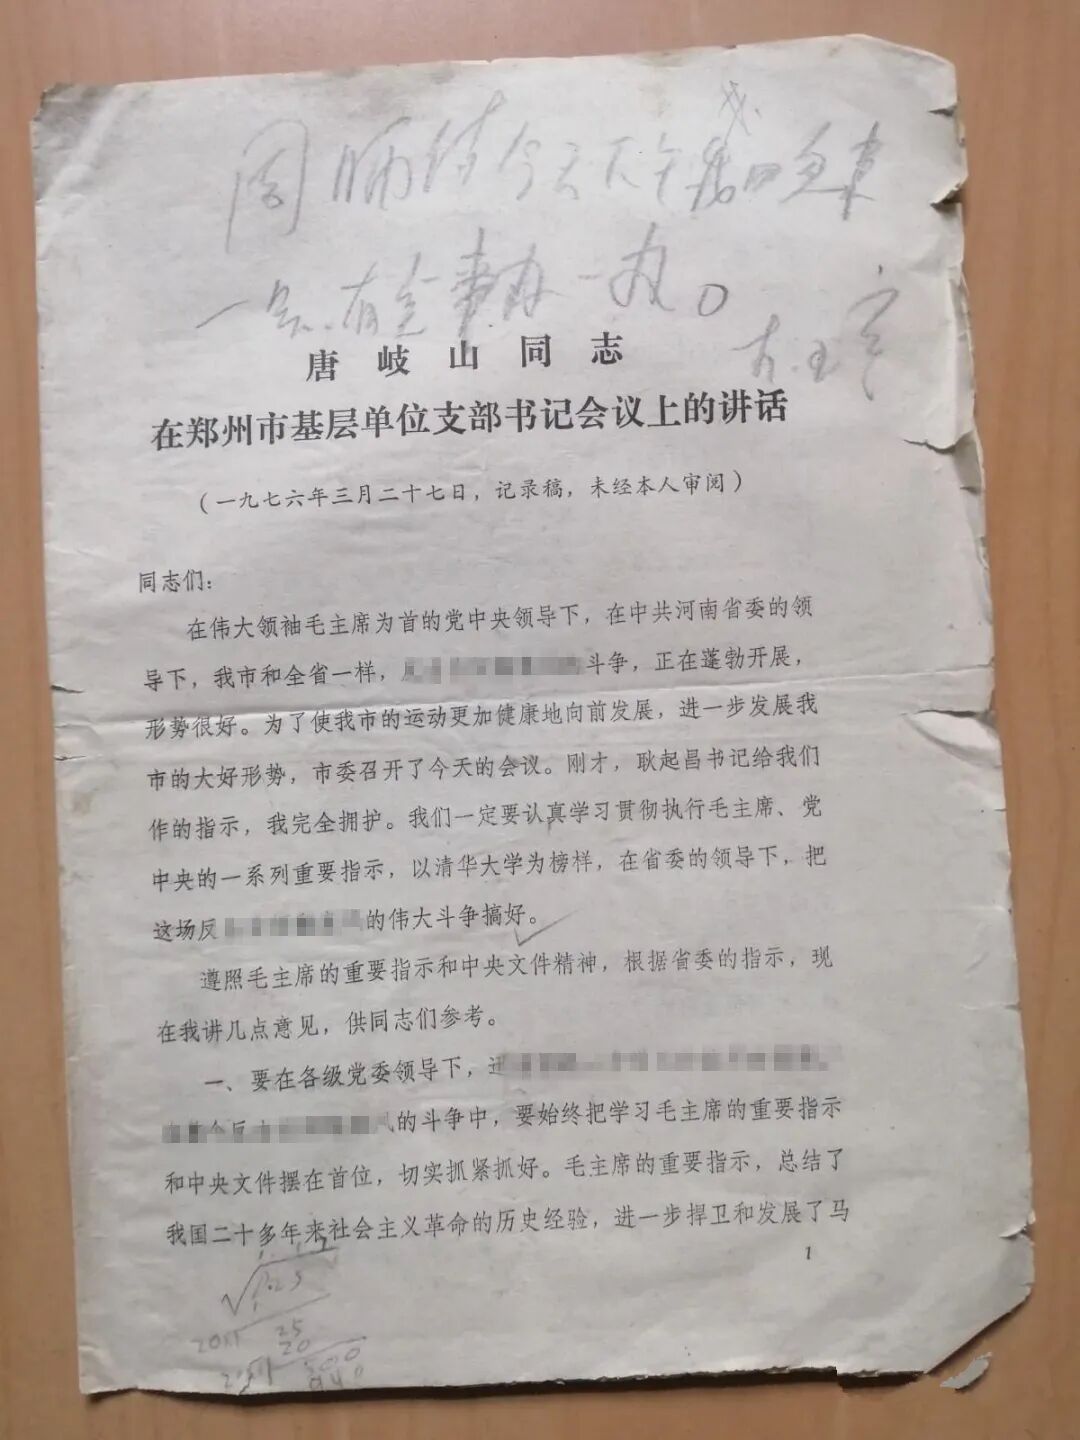 周师傅今天下午我回兑车
一会.有空事办一办。
唐岐山同志
在郑州市基层单位支部书记会议上的讲话
（一九七六年三月二十七日，记录稿，未经本人审阅）
同志们：
在伟大领袖毛主席为首的党中央领导下，在中共河南省委的领
导下，我市和全省一样，斗争，正在蓬勃开展，
形势很好。为了使我市的运动更加健康地向前发展，进一步发展我
市的大好形势，市委召开了今天的会议。刚才，耿起昌书记给我们
作的指示，我完全拥护。我们一定要认真学习贯彻执行毛主席、党
中央的一系列重要指示，以清华大学为榜样，在省委的领导下，把
这场反的伟大斗争搞好。
遵照毛主席的重要指示和中央文件精神，根据省委的指示，现
在我讲几点意见，供同志们参考。
一、要在各级党委领导下，
风的斗争中，要始终把学习毛主席的重要指示
和中央文件摆在首位，切实抓紧抓好。毛主席的重要指示，总结了
我国二十多年来社会主义革命的历史经验，进一步捍卫和发展了马
1
1.25
25
20